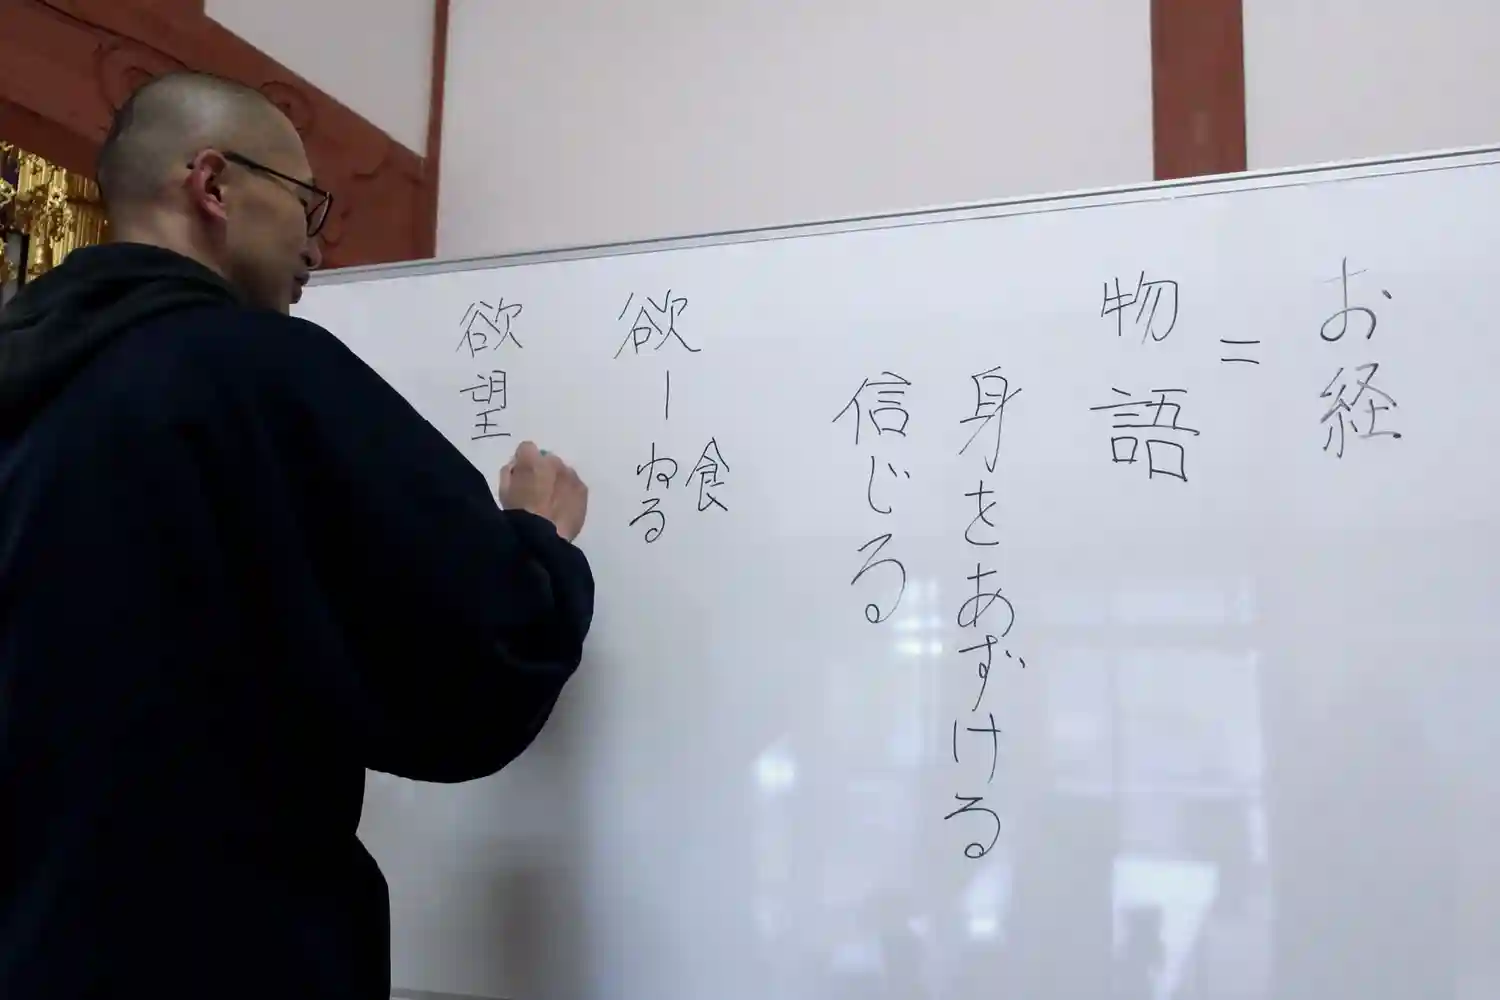 お経
=
物語
身をあずける
信じる
欲ー食
ねる
欲望